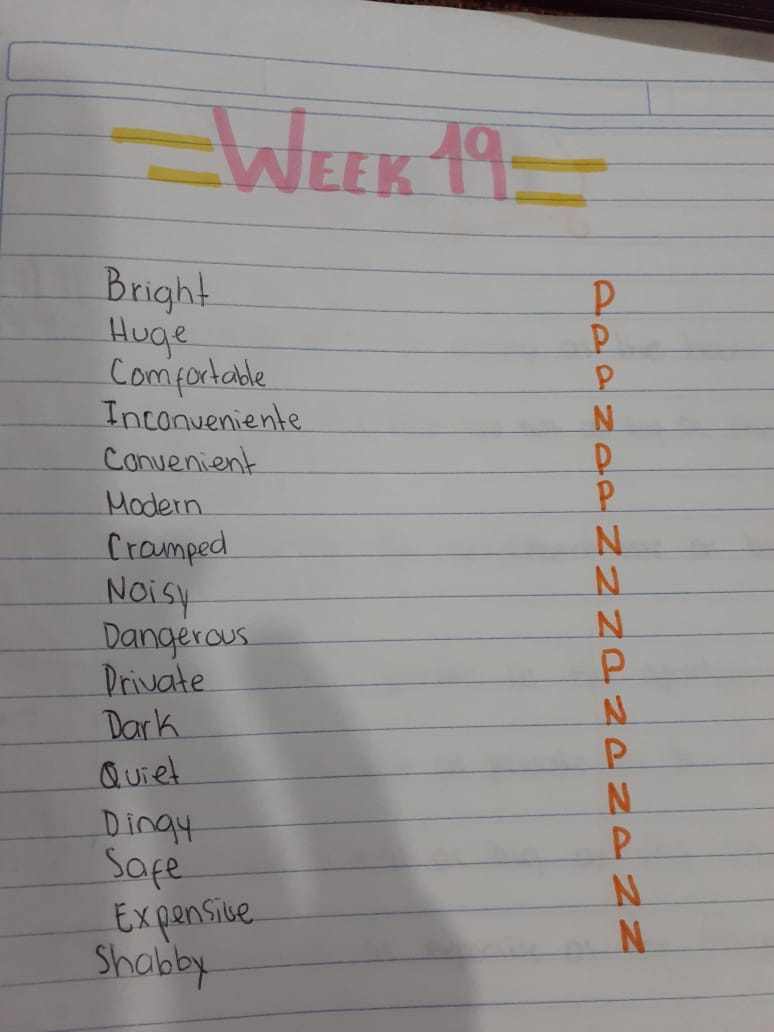 WEEK 19
Bright P
Huge P
Comfortable P
Inconveniente N
Convenient P
Modern P
Cramped N
Noisy N
Dangerous N
Private P
Dark N
Quiet P
Dingy N
Safe P
Expensive N
Shabby N